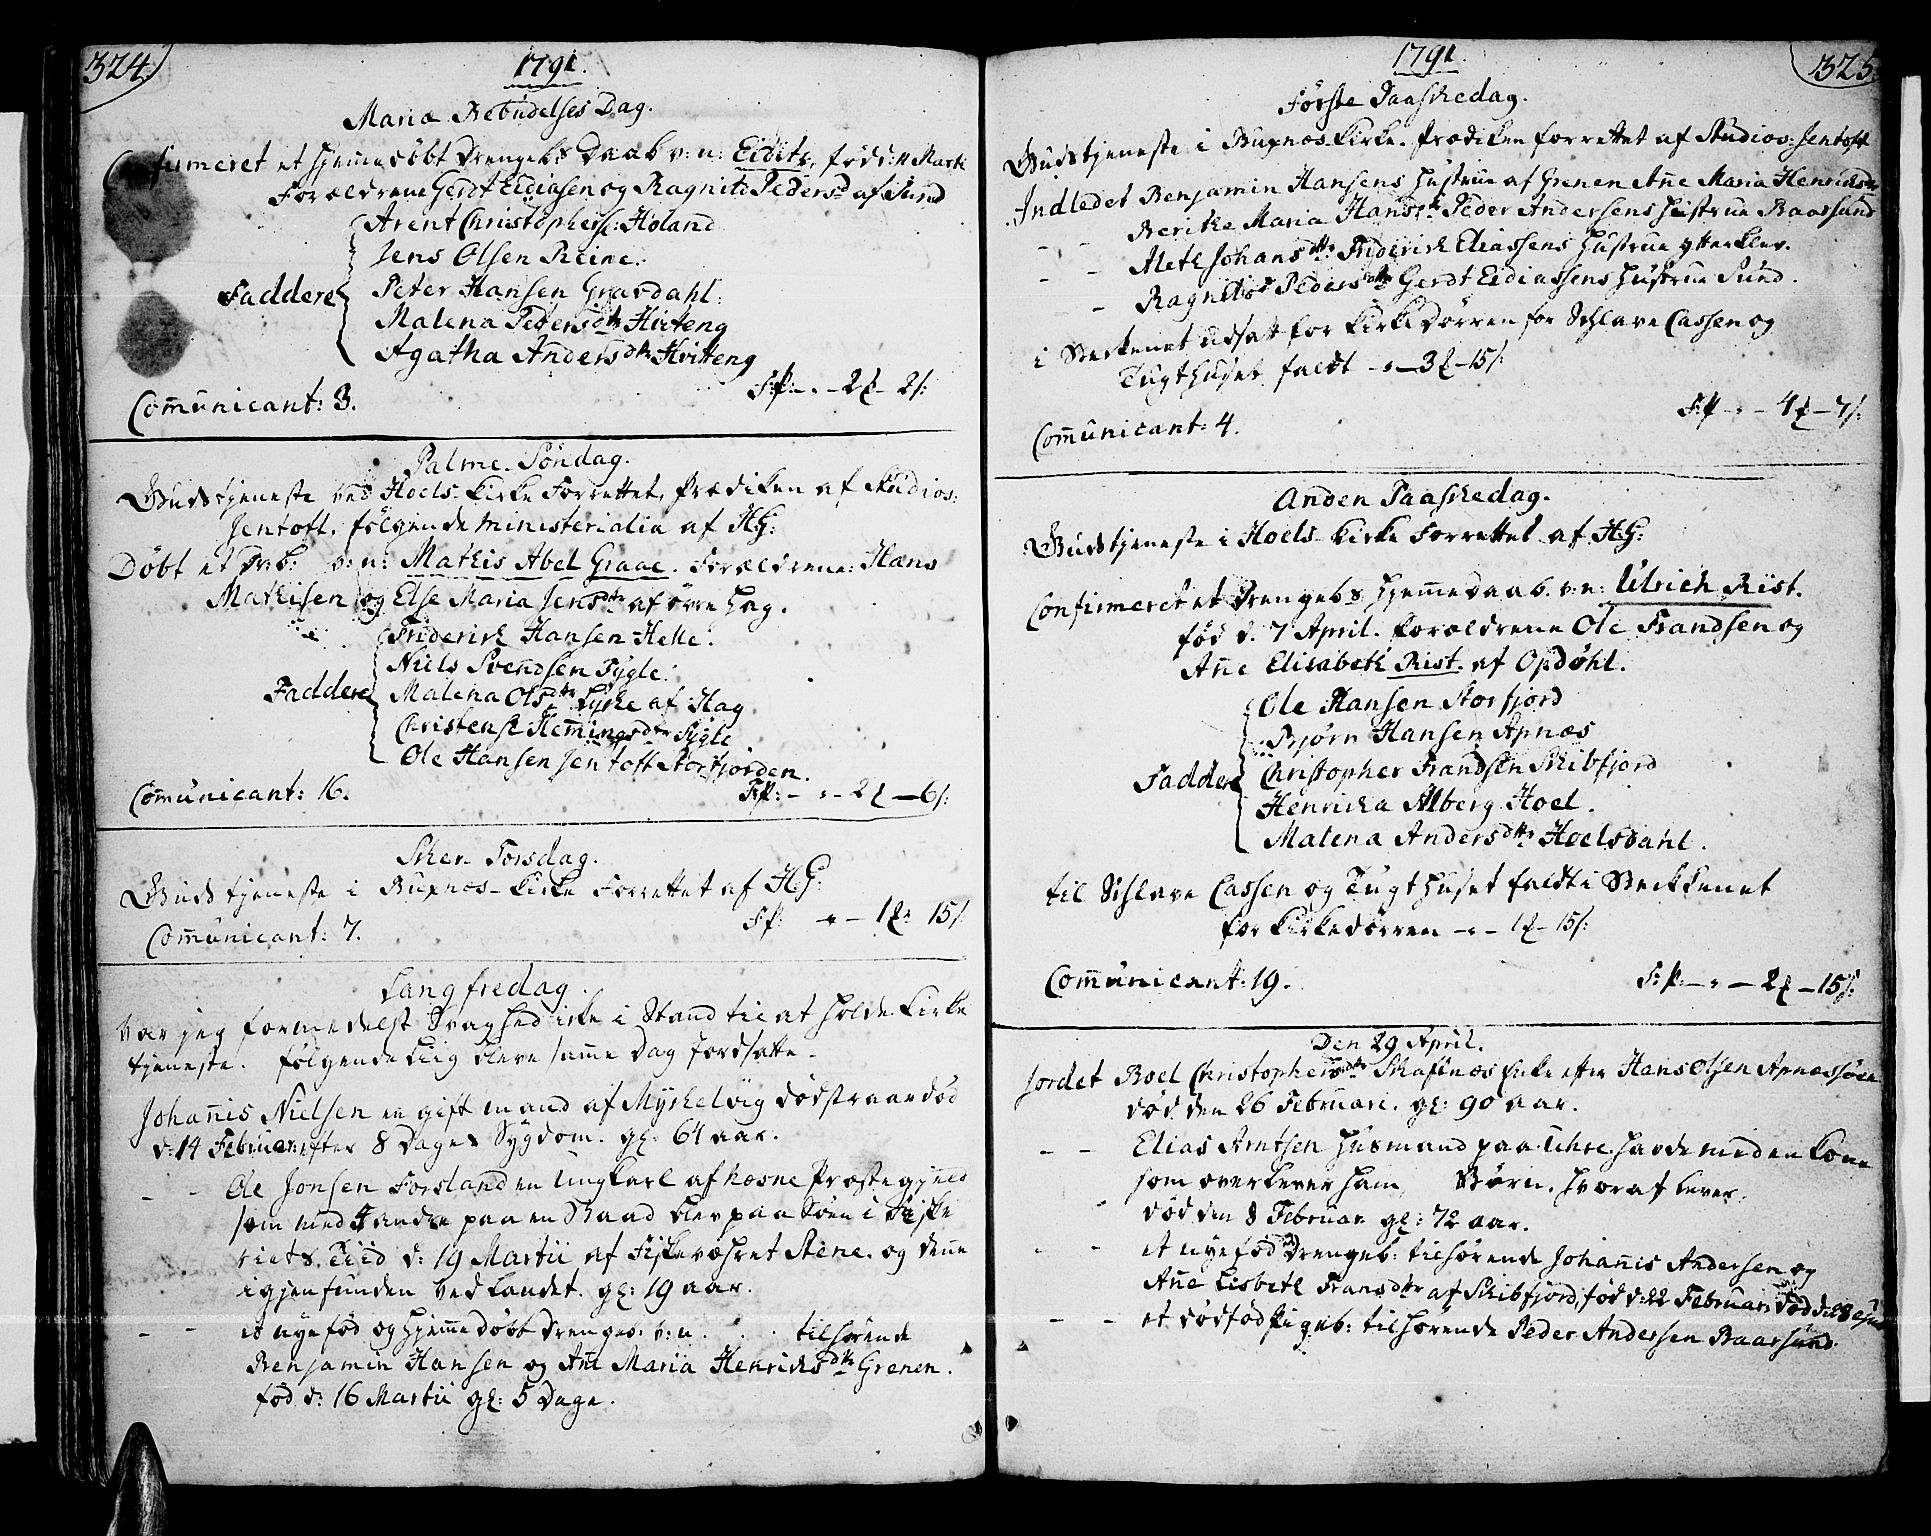 324
1791.
Mariæ Bebudelses Dag.
Confirmeret et hjemmedøbt Drengebs Daab v: n: Eidis, fødd: 11 Marti
Forældrene Gerdt Eidiasen og Ragnild Pedersd. af Sund
Arent Christophers: Holand
Jens Olsen Reine:
Faddere Peter Hansen Gravdahl:
Malena Pedersdtr Hvitteng
Agatha Andersdtr Hvitteng
F:P: - „ - 2 ℔ - 2 /:
Comunicant: 3.
Palme-Søndag.
Gudstjeneste ved Hoels-Kirke Forrettet, Prædiken af Studios:
Jentoft. følgende ministerialia af HG:
Døbt et Dr:b: v: n: Mathis Abel Graae. Forældrene: Hans
Mathisen og Else Maria Jensdtr af øvre Hag.
Friderich Hansen Helle:
Niels Svendsen Sygle:
Faddere Malena Olsdtr af Hag
Christense Hemingsdtr Sygle
Ole Hansen Jentoft Storfjorden.
Comunicant: 16. F:P: - „ - 2 ℔ - 6 /:
Skær-Torsdag.
Gudstjeneste i Bupnæs-Kirke Forrettet af H.G:
F:P: - „ - 1 ℔ - 15 /:
Comunicant: 7.
Langfredag.
Var jeg formedelst Svaghed icke i Stand til at holde Kirke
tjeneste. følgende Liig bleve samme Dag Jordsatte.
Johanis Nielsen en gift mand af Myrkelvig død
d: 14 Februar: efter 8 Dages Sygdom. gl: 64 aar.
- - Ole Jonsen Forsland en Ungkarl af Næsne Præstegjæld
som med 4 andre paa en Baad blev paa Søen i Fiske
riets Tiid d: 19 Martii af Fiskevæhret Stene. og denne
igjenfunden ved Landet. gl: 19 aar.
- - et nyefød og hjemmedøbt Drengeb: v: n. . . . tilhørende
Benjamin Hansen og Ane Maria Henrichsdtr Grenen.
fød d: 16 Martii gl: 5 Dage.
325
1791.
Første Paaskedag.
Gudstjeneste i Bupnæs-Kirke. Prædiken forrettet af Studios: Jentoft
Indledet Benjamin Hansens Hustrue af Grenen Ane Maria Henrichsdtr
- - Berithe Maria Hansdtr Peder Andersens Hustrue Baarsund
- - Alethe Johansdtr Friderich Eliassens Hustrue ytterklev.
- - Ragnild Pedersdtr Gerdt Eidiassens Hustrue Sund.
i Beckenet udsatt for Kirkedørren for Schlave Cassen og
Tugthuset faldt - „ - 3 ℔ - 15 /:
F:P: - „ - 4 ℔ - 7 /:
Comunicant: 4.
Anden Paaskedag.
Gudstjeneste i Hoels-Kirke Forrettet af H.G:
Confirmeret et Drengebs hjemmedaab. v: n: Ulrich Rist.
fød d. 7 April. forældrene Ole Frandsen og
Ane Elisabeth Rist. af Opdøhl.
Ole Hansen Storfjord
Bjørn Hansen Apnæs
Faddere Christopher Frandsen Skibfjord
Henricha Alberg Hoel.
Malena Andersdtr Hoelsdahl.
til Schlave Cassen og Tugthuset faldt i Beckkenet
for Kirkedørren - „ - 1 ℔ - 15 /:
Comunicant: 19. F:P: - „ - 2 ℔ - 15 /:
Den 29 April.
Jordet Boel Christophersdtr Skafsnæs Enke efter Hans Olsen Apnæssøen
død den 26 Februari. gl: 90 aar.
- - Elias Arntsen Huusmand paa Uhre. havde med en Kone
som overlever ham, Børn. hvoraf lever.
død den 8 Februar. gl: 72 aar.
- - et nyefød Drengeb: tilhørende Johanis Andersen og
Ane Lisbeth Fransdtr af Skibfjord, fød d: 22 Februari død d: 28
- - et dødfød Pigeb: tilhørende Peder Andersen Baarsund.